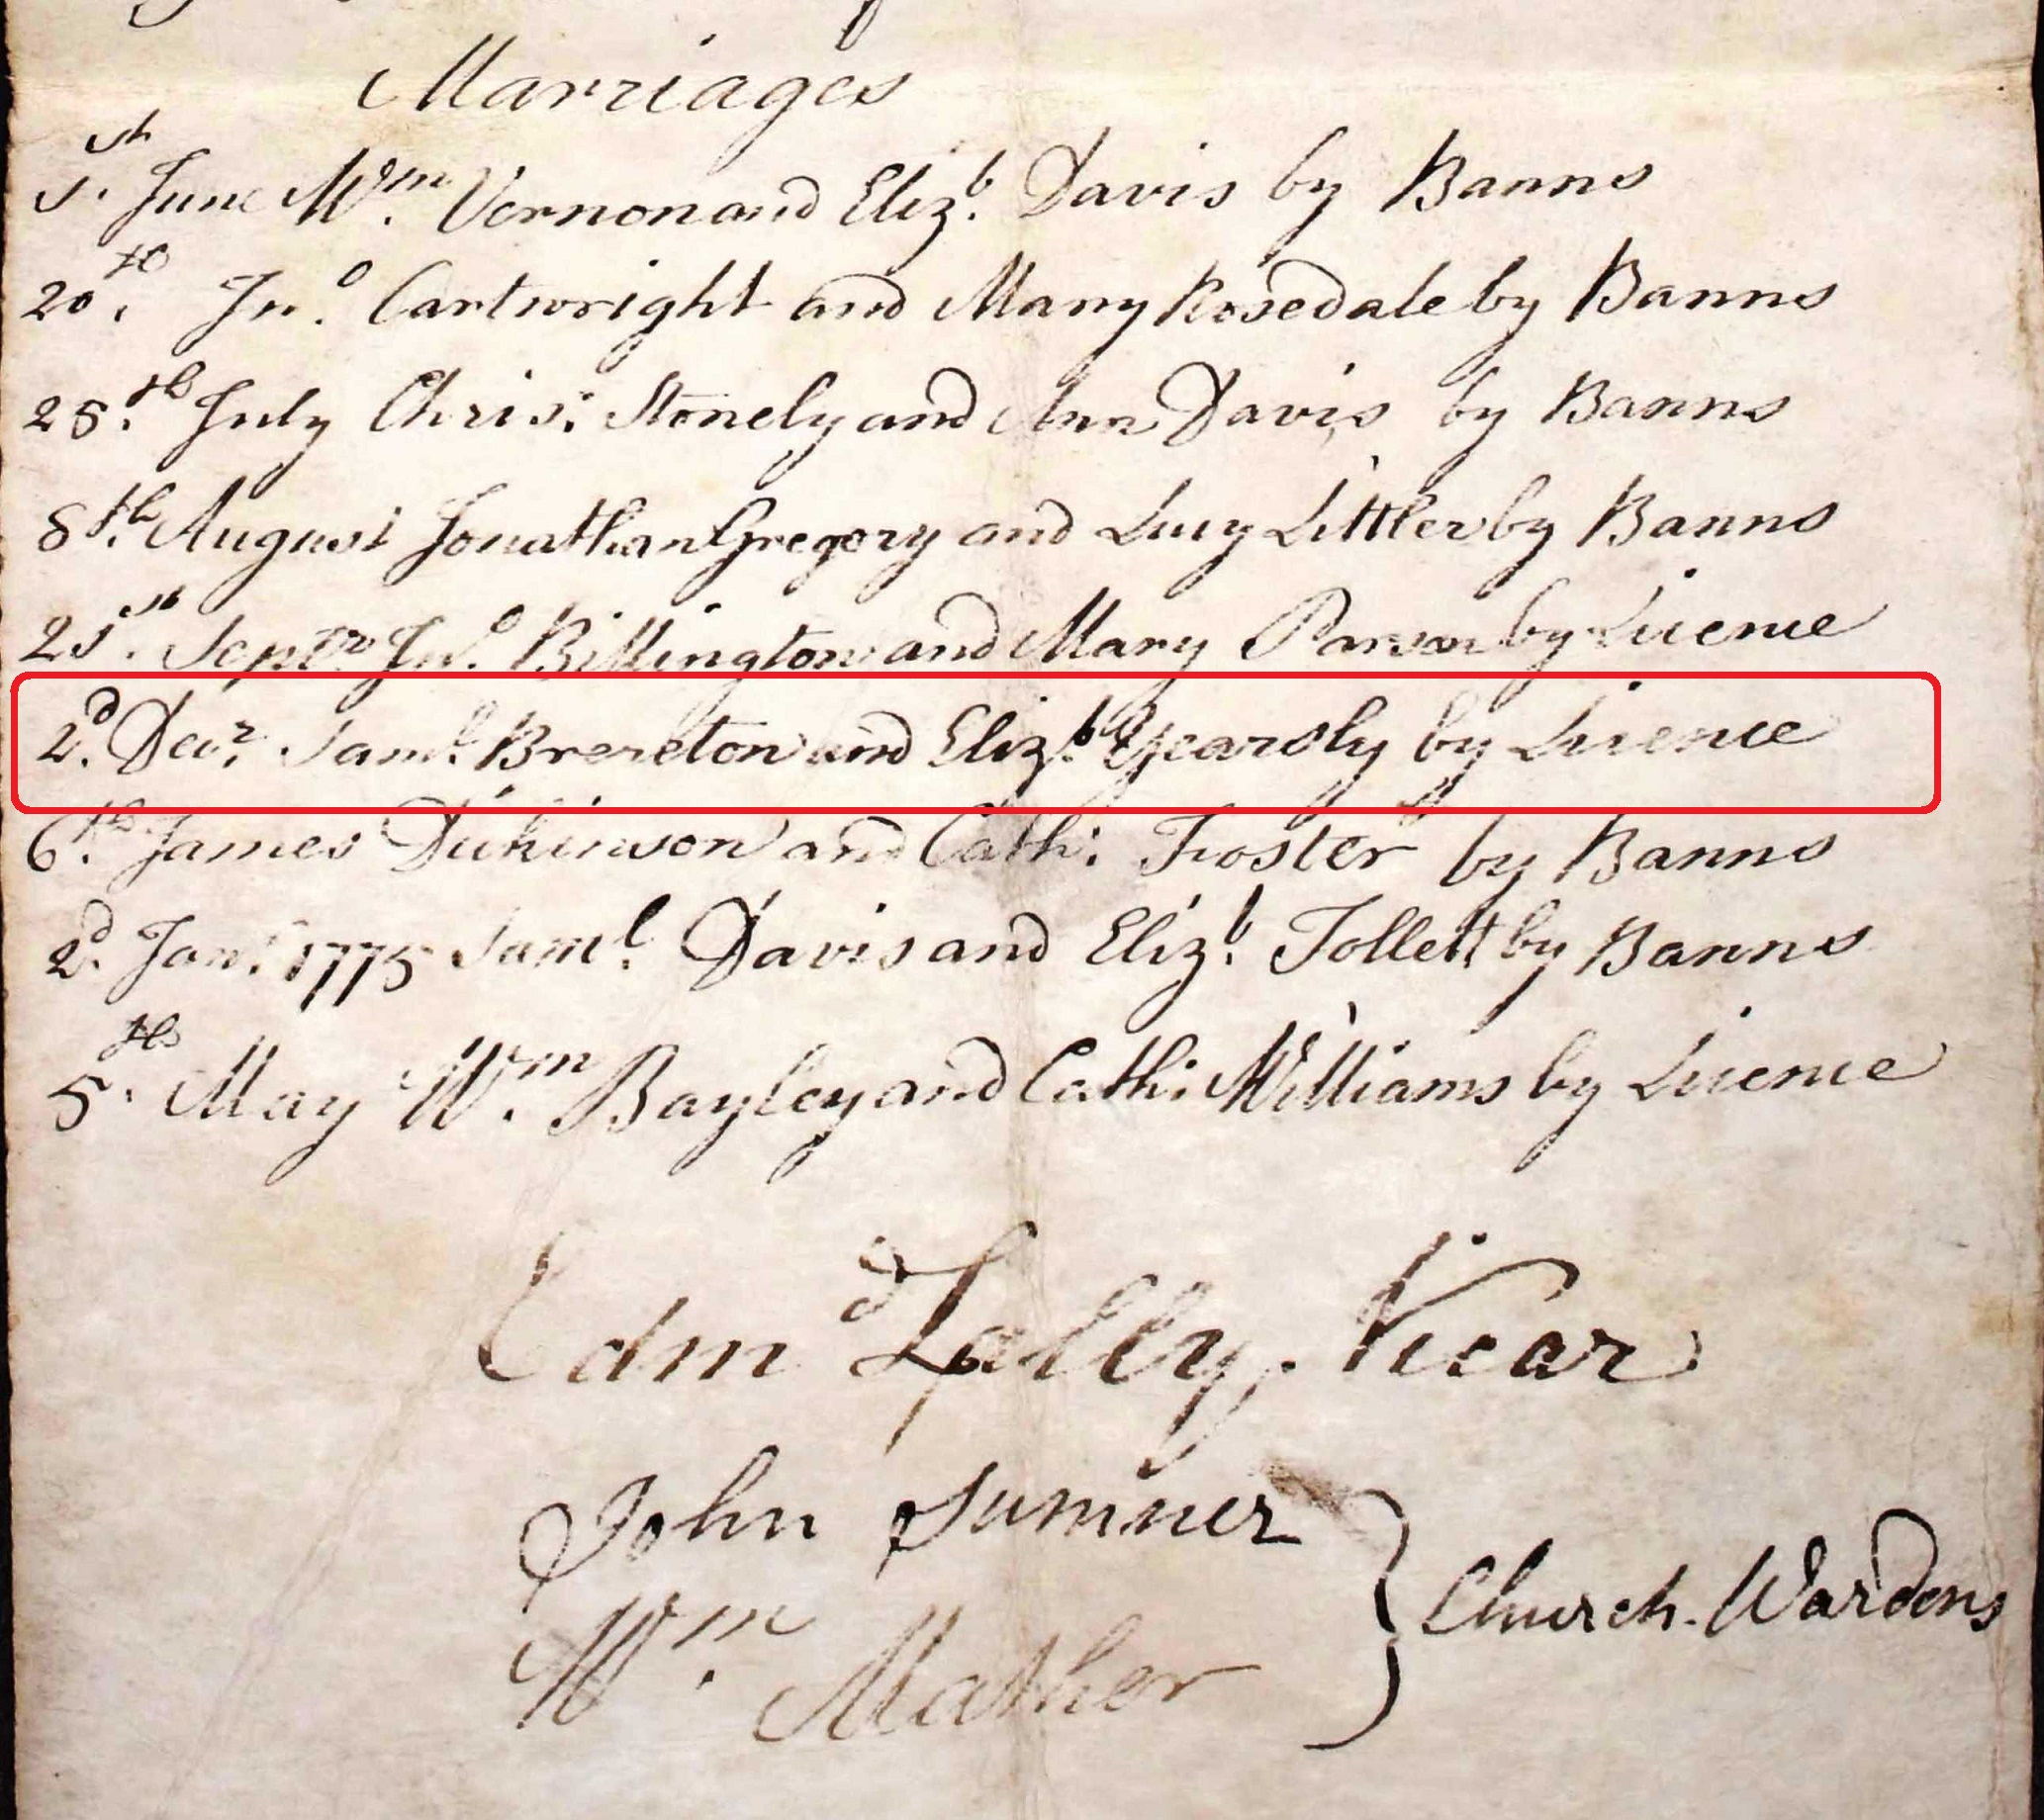 Marriages
1.st June Wm. Vernon and Eliz.b Davis by Banns
20.th Jn.o Cartwright and Mary Rosedale by Banns
28.th July Chris.r Stonely and Ann Davis by Banns
8.th August Jonathan Gregory and Lucy Littler by Banns
21.st Septr. Jn.o Billington and Mary Parson by Licence
2.d Decr. Saml. Brereton and Eliz.b Yearsly by Licence
6.th James Dickinson and Cath: Froster by Banns
2.d Jan.y 1775 Saml. Davis and Eliz.b Tollett by Banns
5.th May Wm. Bayley and Cath: Williams by Licence
Edmd Vicar
John Sumner
Church-Wardens
Wm. Mather